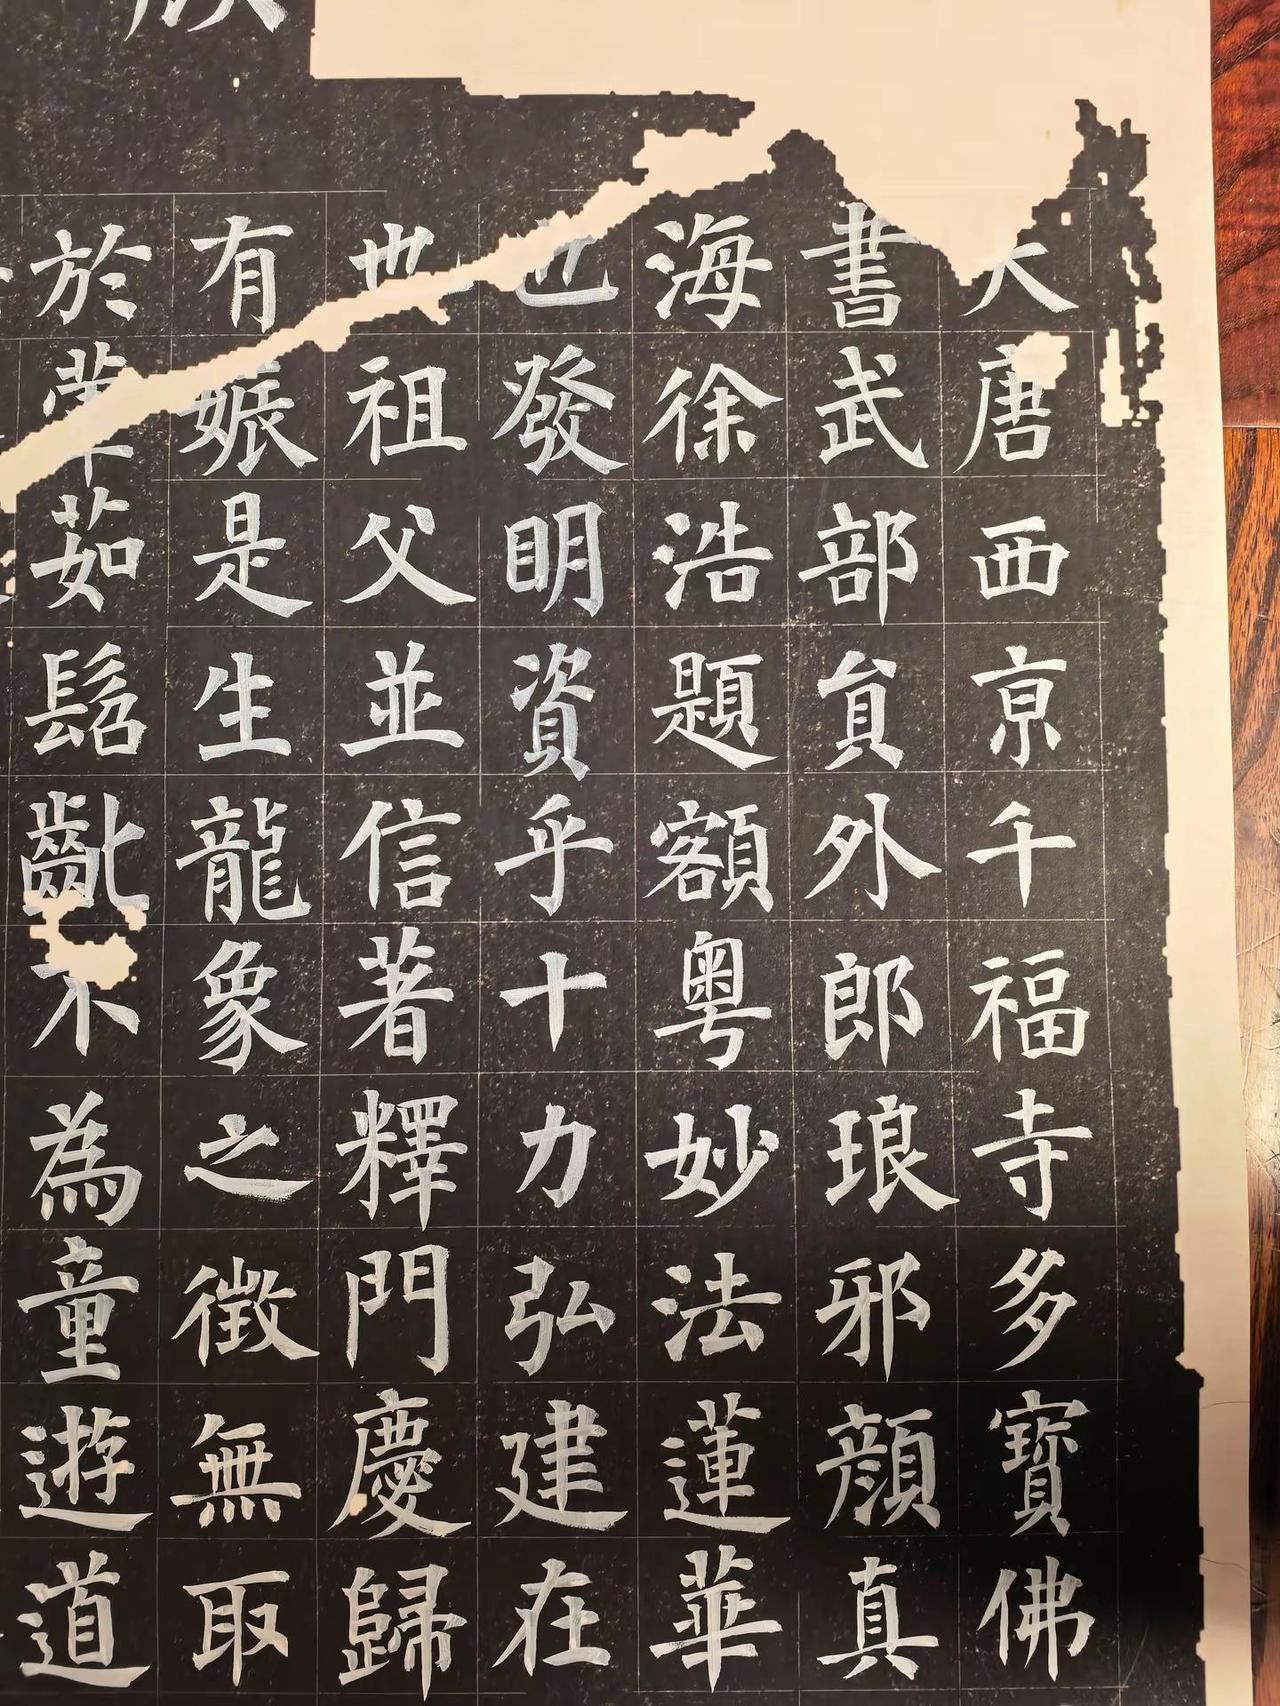 大唐西京千福寺多寶佛
書武部員外郎琅邪顏真
海徐浩題額粵妙法蓮華
也發明資乎十力弘建在
也祖父並信著釋門慶歸
有娠是生龍象之徵無取
於葷茹髫齔不為童遊道